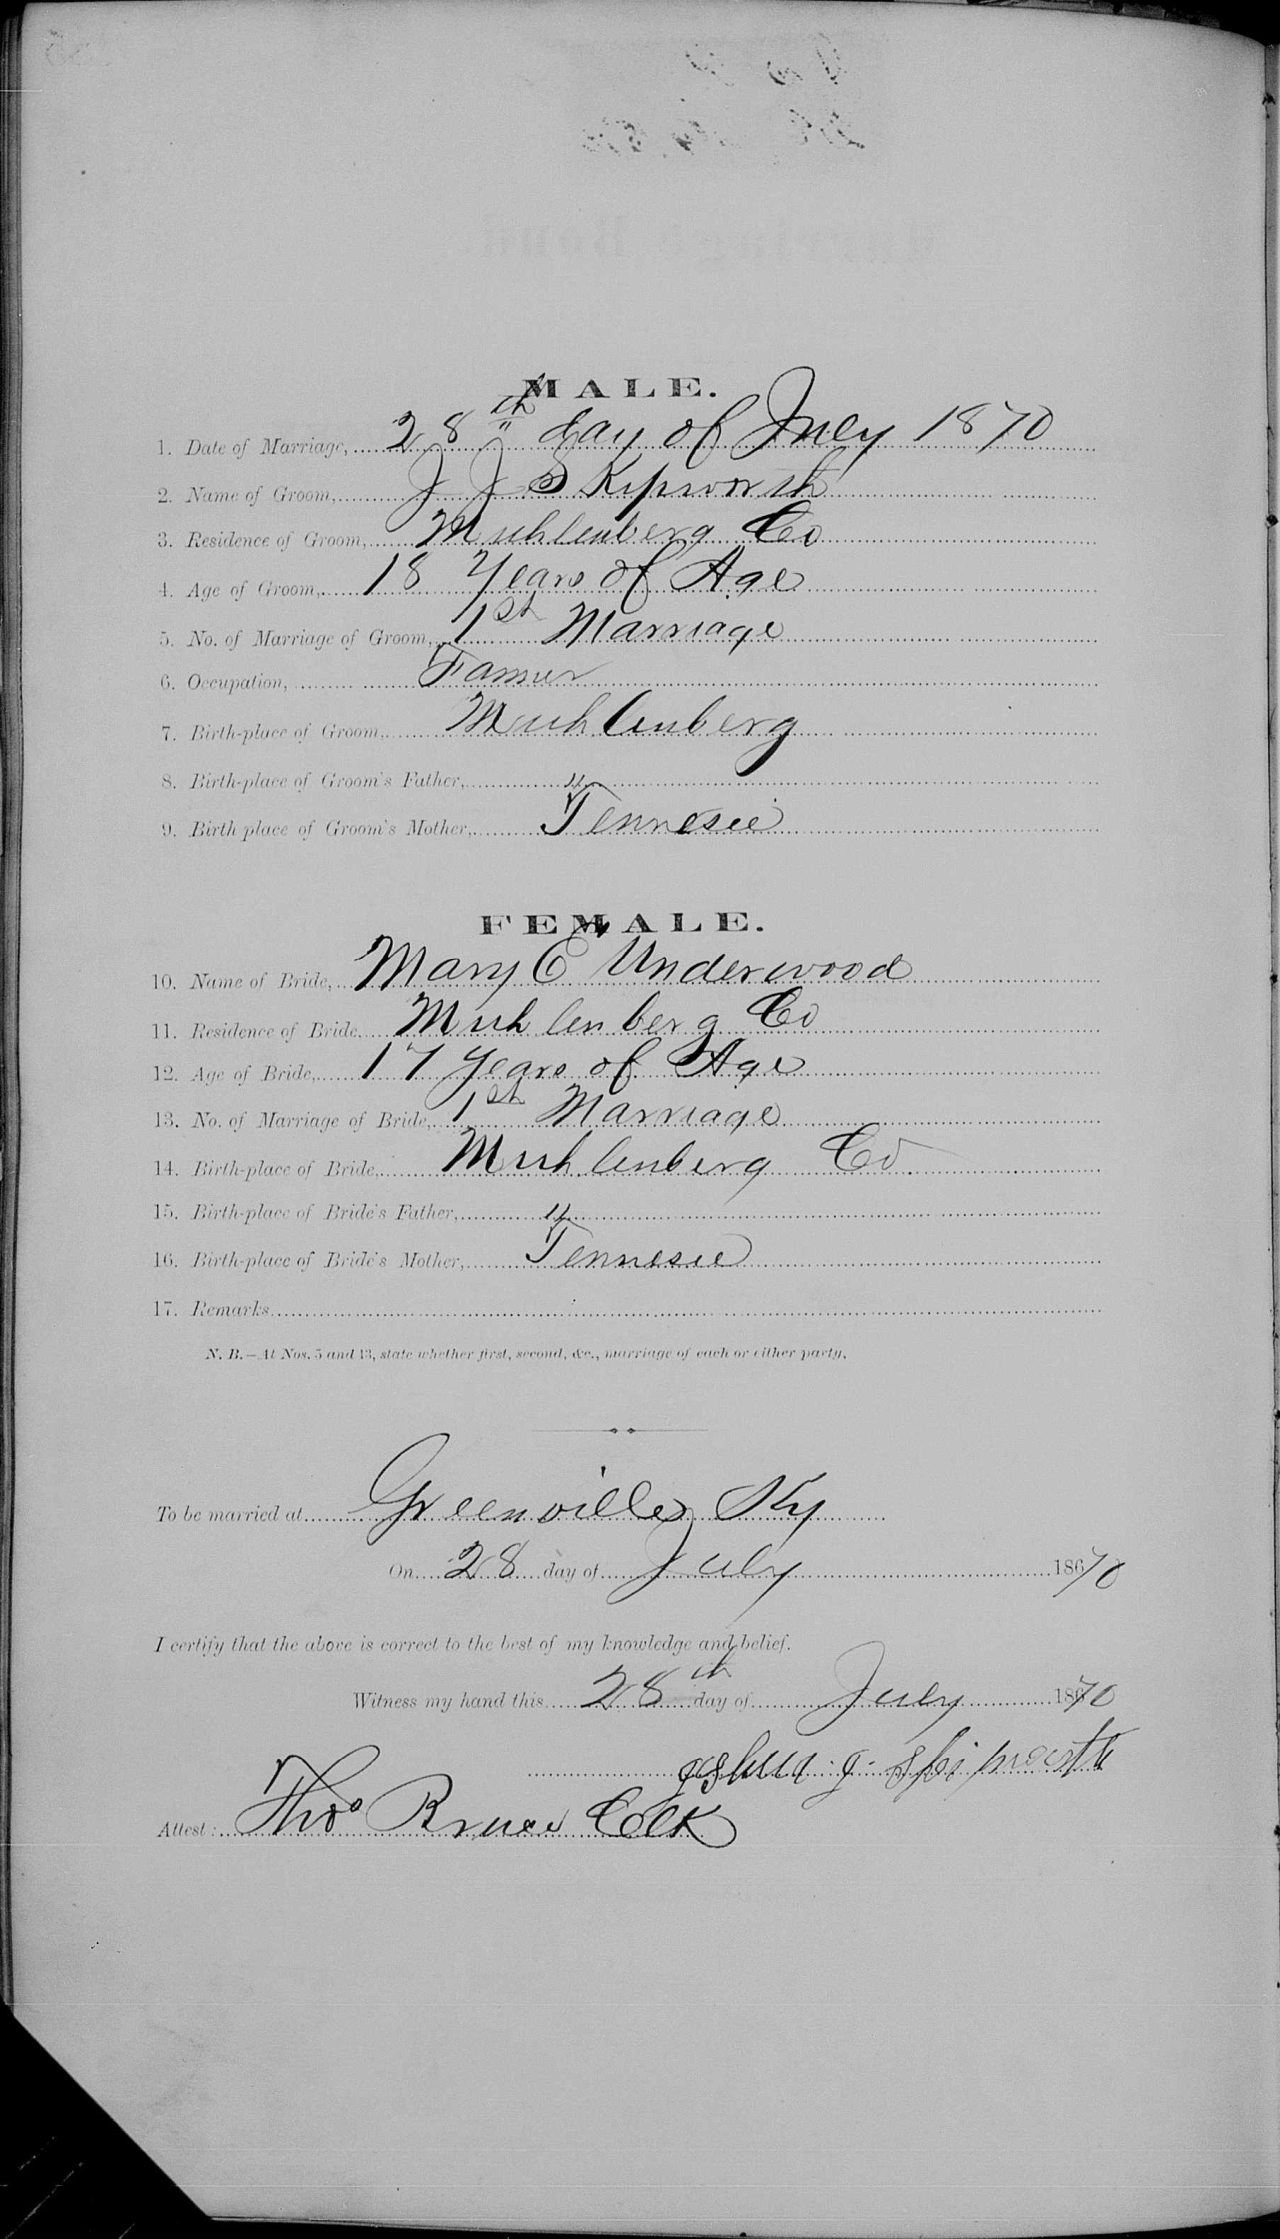 MALE.
1. Date of Marriage, 28th day of July 1870
2. Name of Groom, J J Skipworth
3. Residence of Groom, Muhlenberg Co
4. Age of Groom, 18 Years of Age
5. No. of Marriage of Groom, 1st Marriage
6. Occupation, Farmer
7. Birth-place of Groom, Muhlenberg
8. Birth-place of Groom's Father, "
9. Birth place of Groom's Mother, Tennesee
FEMALE.
10. Name of Bride, Mary E Underwood
11. Residence of Bride Muhlenberg Co
12. Age of Bride, 17 years of Age
13. No. of Marriage of Bride, 1st Marriage
14. Birth-place of Bride, Muhlenberg Co
15. Birth-place of Bride's Father, "
16. Birth-place of Bride's Mother, Tennesee
17. Remarks
N. B.—At Nos. 5 and 13, state whether first, second, &c., marriage of each or either party.
To be married at Greenville Ky
On 28 day of July 1870
I certify that the above is correct to the best of my knowledge and belief.
Witness my hand this 28th day of July 1870
J.
Attest: Thos Bruce Clk